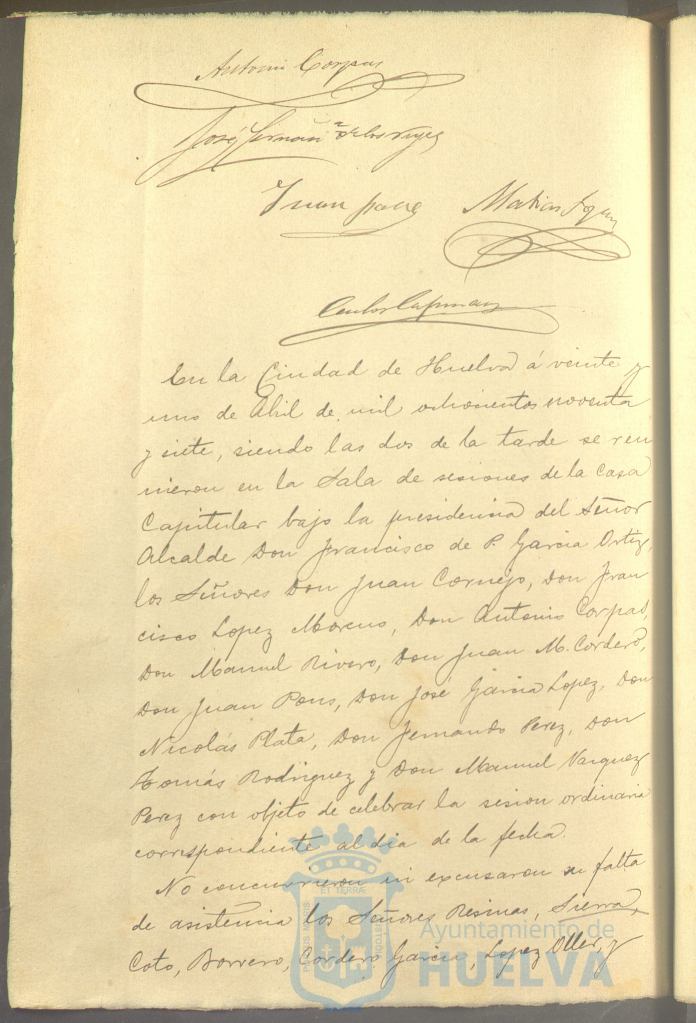 Antonio Corpas
José Hernán.z de los Reyes
Juan Pons Matias
Carlos
En la Ciudad de Huelva á veinte y
uno de Abril de mil ochocientos noventa
y siete, siendo las dos de la tarde se reu
nieron en la Sala de sesiones de la Casa
Capitular bajo la presidencia del Señor
Alcalde Don Francisco de P. Garcia Ortiz,
los Señores Don Juan Cornejo, Don Fran
cisco Lopez Moreno, Don Antonio Corpas,
Don Manuel Rivero, Don Juan M. Cordero,
Don Juan Pons, Don José Garcia Lopez, Don
Nicolás Plata, Don Fernando Perez, Don
Tomás Rodriguez y Don Manuel Vazquez
Perez con objeto de celebrar la sesion ordinaria
correspondiente al dia de la fecha.
No concurrieron ni excusaron su falta
de asistencia los Señores Resinas, Sierra,
Coto, Borrero, Cordero Garcia, Lopez Oller, y
PORTUS MARIS ET TERRAE CUSTODIA
Ayuntamiento de
HUELVA